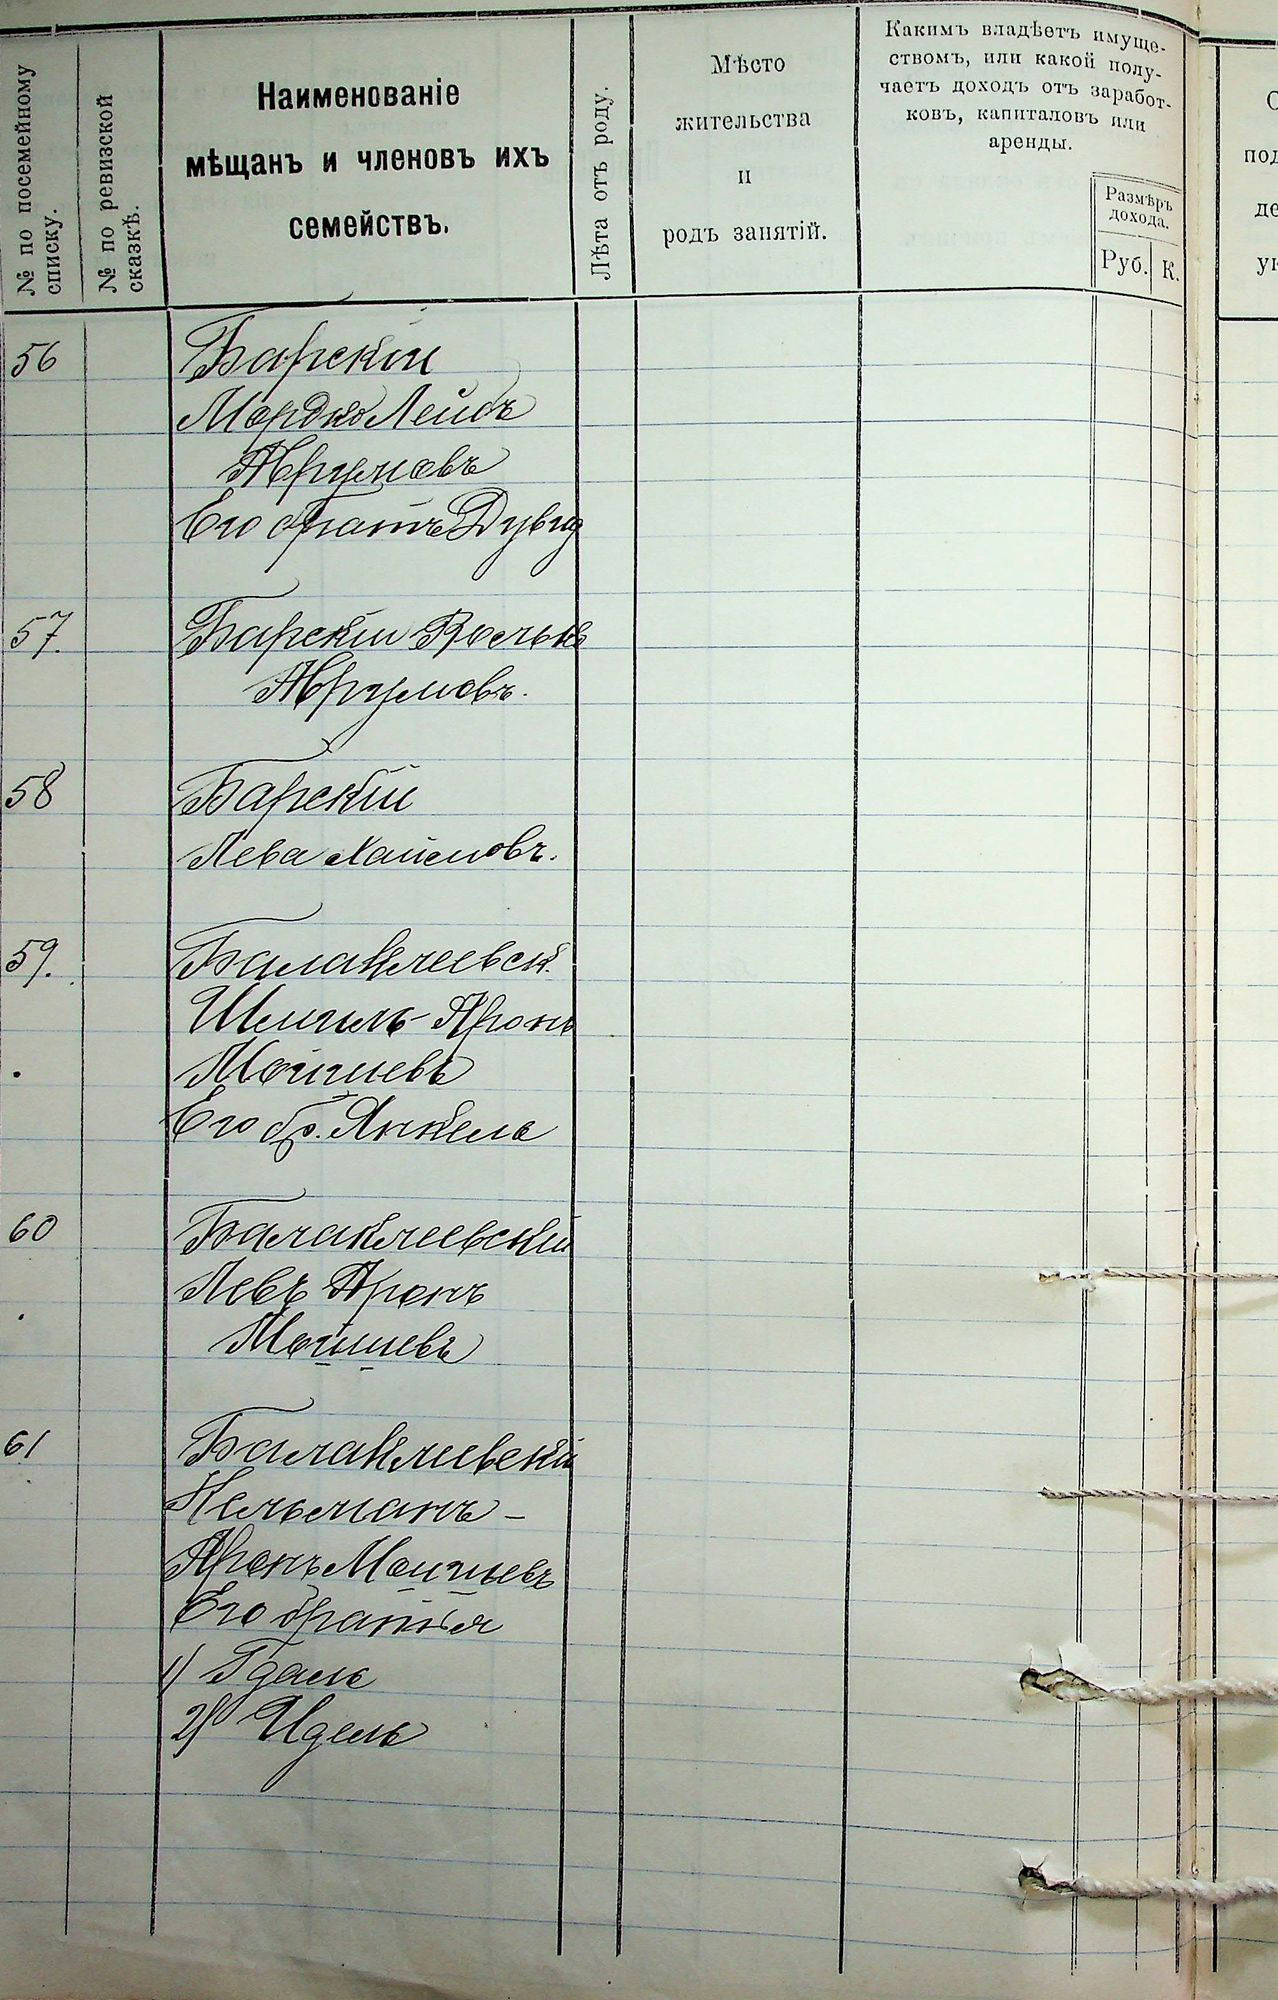 № по посемейному
списку.
№ по ревизской
сказкѣ.
Наименованіе
мѣщанъ и членовъ ихъ
семействъ.
Лѣта отъ роду.
Мѣсто
жительства
и
родъ занятій.
Какимъ владѣетъ имуще-
ствомъ, или какой полу-
чаетъ доходъ отъ заработ-
ковъ, капиталовъ или
аренды.
Размѣръ
дохода.
Руб.
К.
56
Барскій
Мордко Лейбъ
Аврумовъ
Его братъ Дувид
57.
Барскій
Аврумовъ.
58
Барскій
Лева Хаимовъ.
59.
Балаклеевск.
Шмиль-Аронъ
Мошіевъ
Его бр. Янкель
60
Балаклеевскій
Левъ Аронъ
Мошіевъ
61
Балаклеевскій
Кельманъ -
Аронъ Мошіевъ
Его братья
1) Гдаль
2) Идель